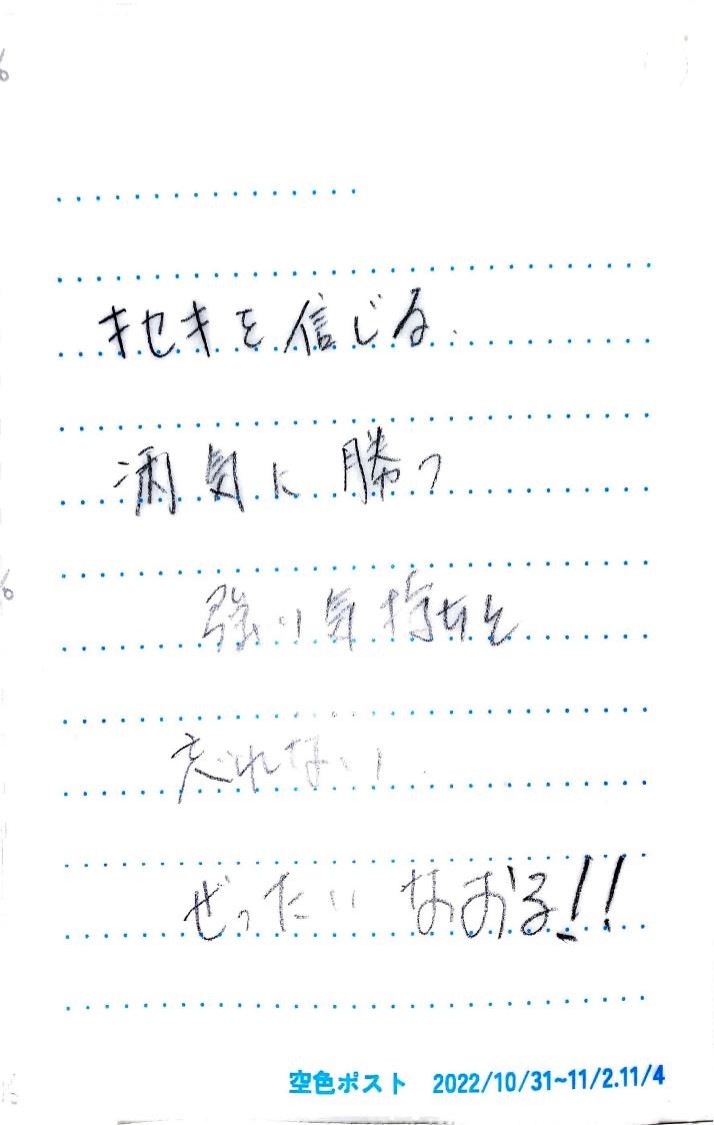 キセキを信じる.
病気に勝つ
強い気持ちを
忘れない.
ぜったい なおる!!
空色ポスト 2022/10/31~11/2.11/4